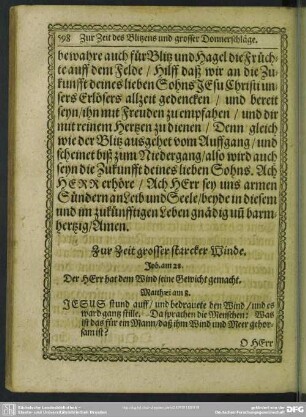 598 Zur Zeit des Blitzens und grosser Donnerschläge.
bewahre auch für Blitz und Hagel die Früch-
te auff dem Felde / Hilff daß wir an die Zu-
kunfft deines lieben Sohns JEsu Christi un-
sers Erlösers allzeit gedencken / und bereit
seyn / ihn mit Freuden zu empfahen / und dir
mit reinem Hertzen zu dienen / Denn gleich
wie der Blitz ausgehet vom Auffgang / und
scheinet biß zum Niedergang / also wird auch
seyn die Zukunfft deines lieben Sohns. Ach
HERR erhöre / Ach HErr sey uns armen
Sündern an Leib und Seele / beyde in diesem
und im zukünfftigen Leben gnädig uñ barm-
hertzig / Amen.
Zur Zeit grosser starcker Winde.
Job. am 28.
Der HErr hat dem Wind seine Gewicht gemacht.
Matthei am 8.
JESUS stund auff / und bedrauete den Wind / und es
ward gantz stille. Da sprachen die Menschen: Was
ist das für ein Mann / daß ihm Wind und Meer gehor-
sam ist?
O HErr